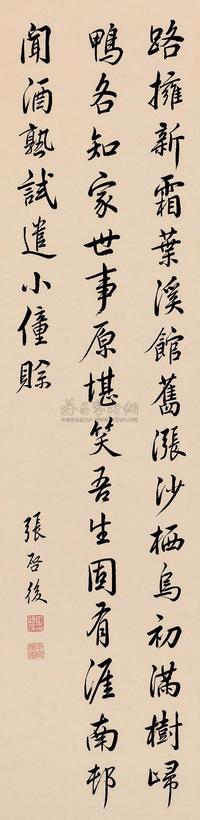 路擁新霜葉溪餘舊漲沙栖烏初滿樹歸
鴨各知家世事原堪笑吾生固有涯南邨
聞酒熟試遣小僮賒
張啓後